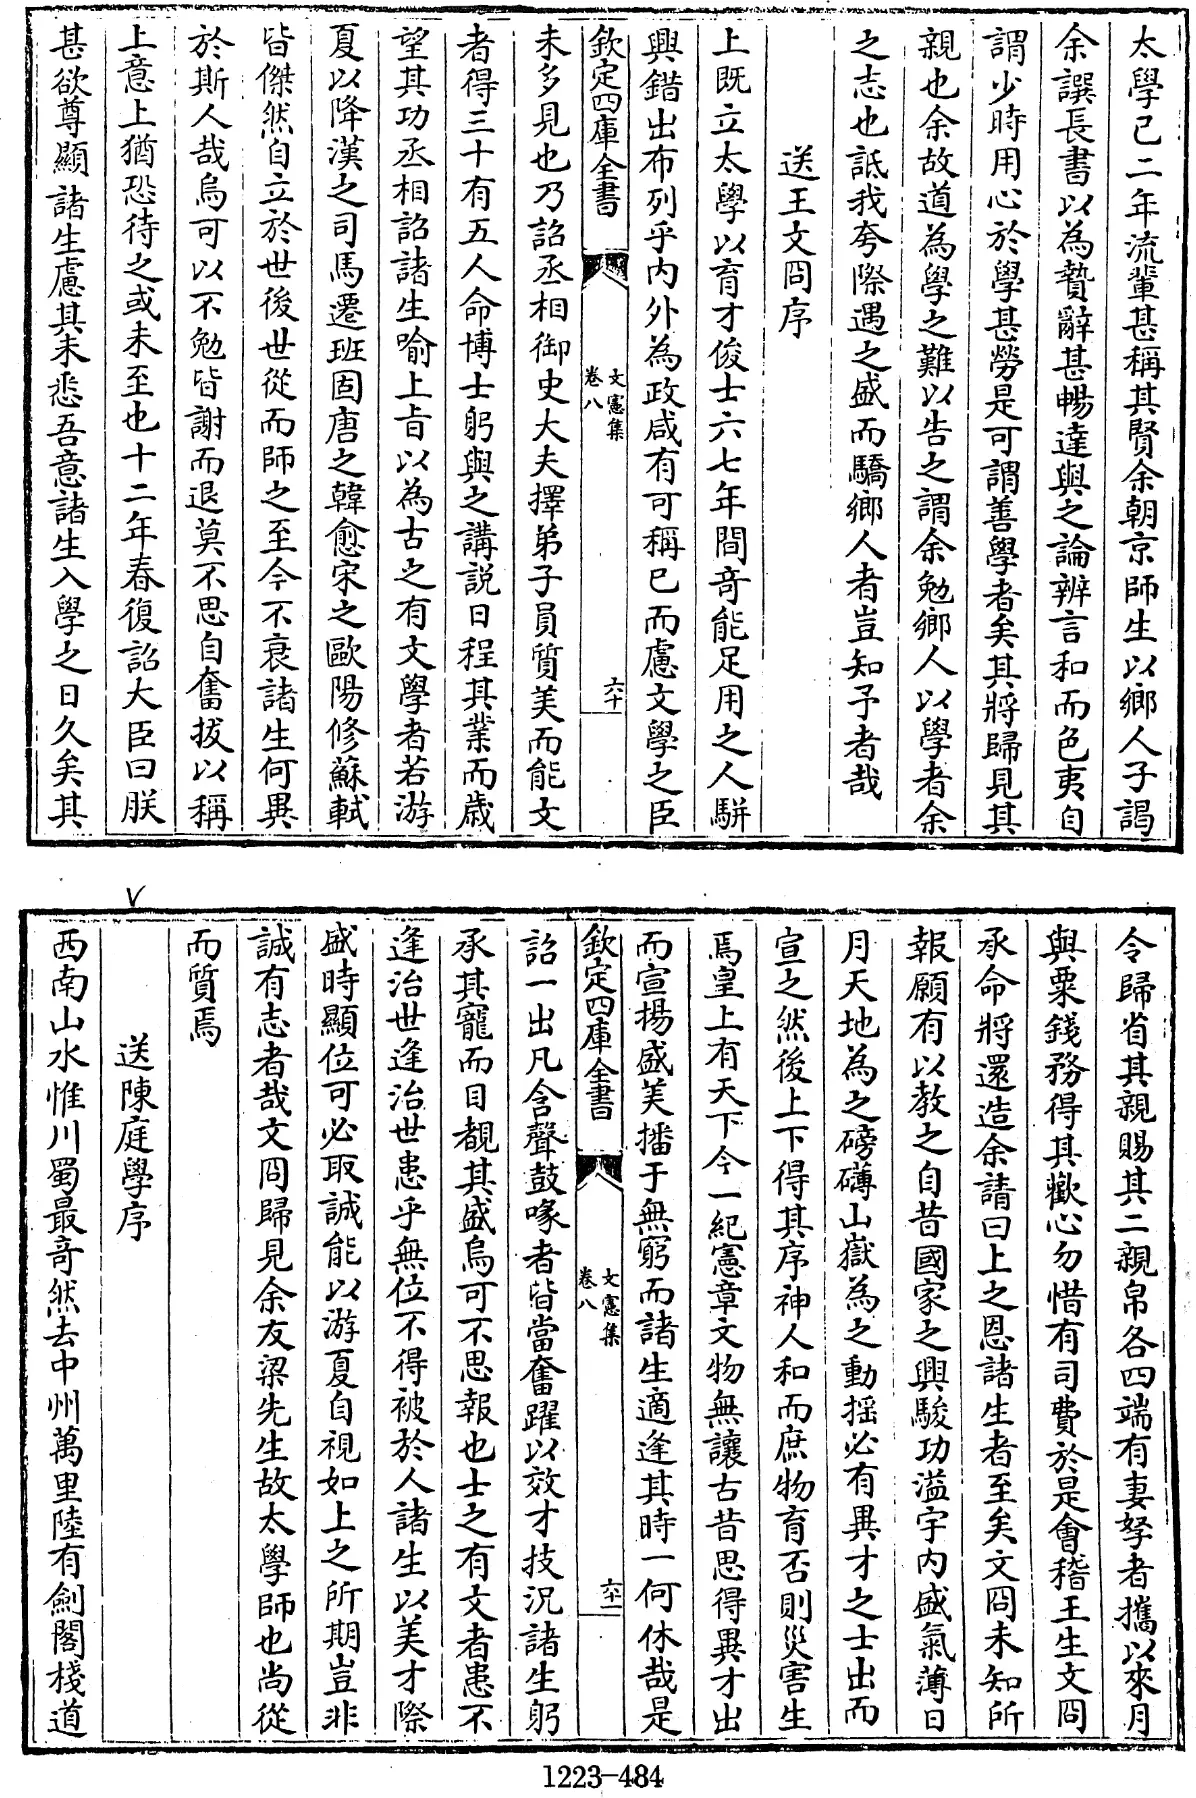 太學已二年流輩甚稱其賢余朝京師生以鄉人子謁
余譔長書以為贄辭甚暢達與之論辨言和而色夷自
謂少時用心於學甚勞是可謂善學者矣其將歸見其
親也余故道為學之難以告之謂余勉鄉人以學者余
之志也詆我夸際遇之盛而驕鄉人者豈知予者哉
送王文冏序
上既立太學以育才俊士六七年間竒能足用之人駢
興錯出布列乎内外為政咸有可稱已而慮文學之臣
欽定四庫全書
文憲集
卷八
六十
未多見也乃詔丞相御史大夫擇弟子員質美而能文
者得三十有五人命博士躬與之講説日程其業而歲
望其功丞相詔諸生喻上旨以為古之有文學者若游
夏以降漢之司馬遷班固唐之韓愈宋之歐陽修蘇軾
皆傑然自立於世後世從而師之至今不衰諸生何異
於斯人哉烏可以不勉皆謝而退莫不思自奮拔以稱
上意上猶恐待之或未至也十二年春復詔大臣曰朕
甚欲尊顯諸生慮其未悉吾意諸生入學之日久矣其
令歸省其親賜其二親帛各四端有妻孥者攜以來月
與粟錢務得其歡心勿惜有司費於是會稽王生文冏
承命將還造余請曰上之恩諸生者至矣文冏未知所
報願有以教之自昔國家之興駿功溢宇内盛氣薄日
月天地為之磅礴山嶽為之動揺必有異才之士出而
宣之然後上下得其序神人和而庶物育否則災害生
焉皇上有天下今一紀憲章文物無讓古昔思得異才出
而宣揚盛美播于無窮而諸生適逢其時一何休哉是
欽定四庫全書
文憲集
卷八
六十一
詔一出凡含聲鼓喙者皆當奮躍以效才技況諸生躬
承其寵而目覩其盛烏可不思報也士之有文者患不
逢治世逢治世患乎無位不得被於人諸生以美才際
盛時顯位可必取誠能以游夏自視如上之所期豈非
誠有志者哉文冏歸見余友梁先生故太學師也尚從
而質焉
送陳庭學序
西南山水惟川蜀最竒然去中州萬里陸有劍閣棧道
1223-484